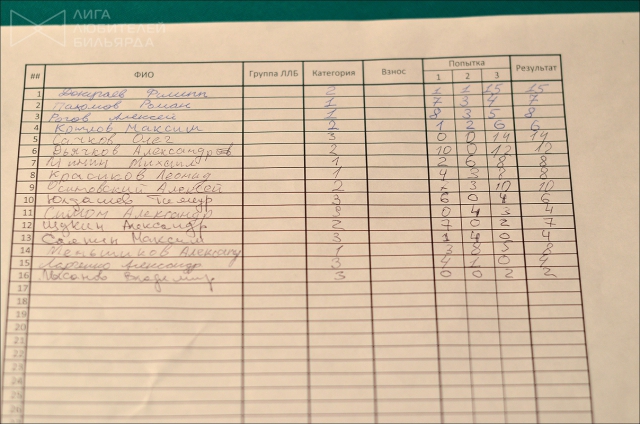 ЛИГА
ЛЮБИТЕЛЕЙ
БИЛЬЯРДА
## ФИО Группа ЛЛБ Категория Взнос Попытка 1 2 3 Результат
1 Филипп 2 1 1 15 15
2 Пахомов Роман 1 7 3 4 7
3 Рогов Алексей 1 8 3 5 8
4 Козлов Максим 2 1 2 6 6
5 Сачков Олег 3 0 0 14 14
6 Дьячков Александров 2 10 0 12 12
7 Минин Михаил 1 2 6 8 8
8 Красиков Леонид 1 4 3 8
9 Осиповский Алексей 2 3 10 10
10 Юлдашев Тимур 3 6 0 4 6
11 Симон Александр 3 0 4 3 4
12 Щукин Александр 2 7 0 2 7
13 Максим 3 1 4 0 4
14 Меньшиков Александр 1 3 8 5 8
15 Александр 3 4 1 0 4
16 Владимир 3 0 0 2 2
17
18
19
20
21
22
23
24
25
26